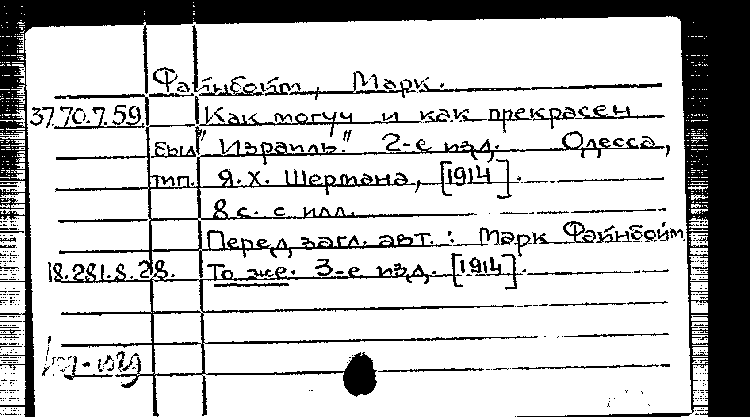 Файнбойм, Марк.
37.70.7.59 Как могуч и как прекрасен
был "Израиль." 2-е изд. Одесса,
тип. Я.Х. Шермана, [1914].
8 с. с илл.
Перед загл. авт.: Марк Файнбойм
18.281.8.28. То же. 3-е изд. [1914].